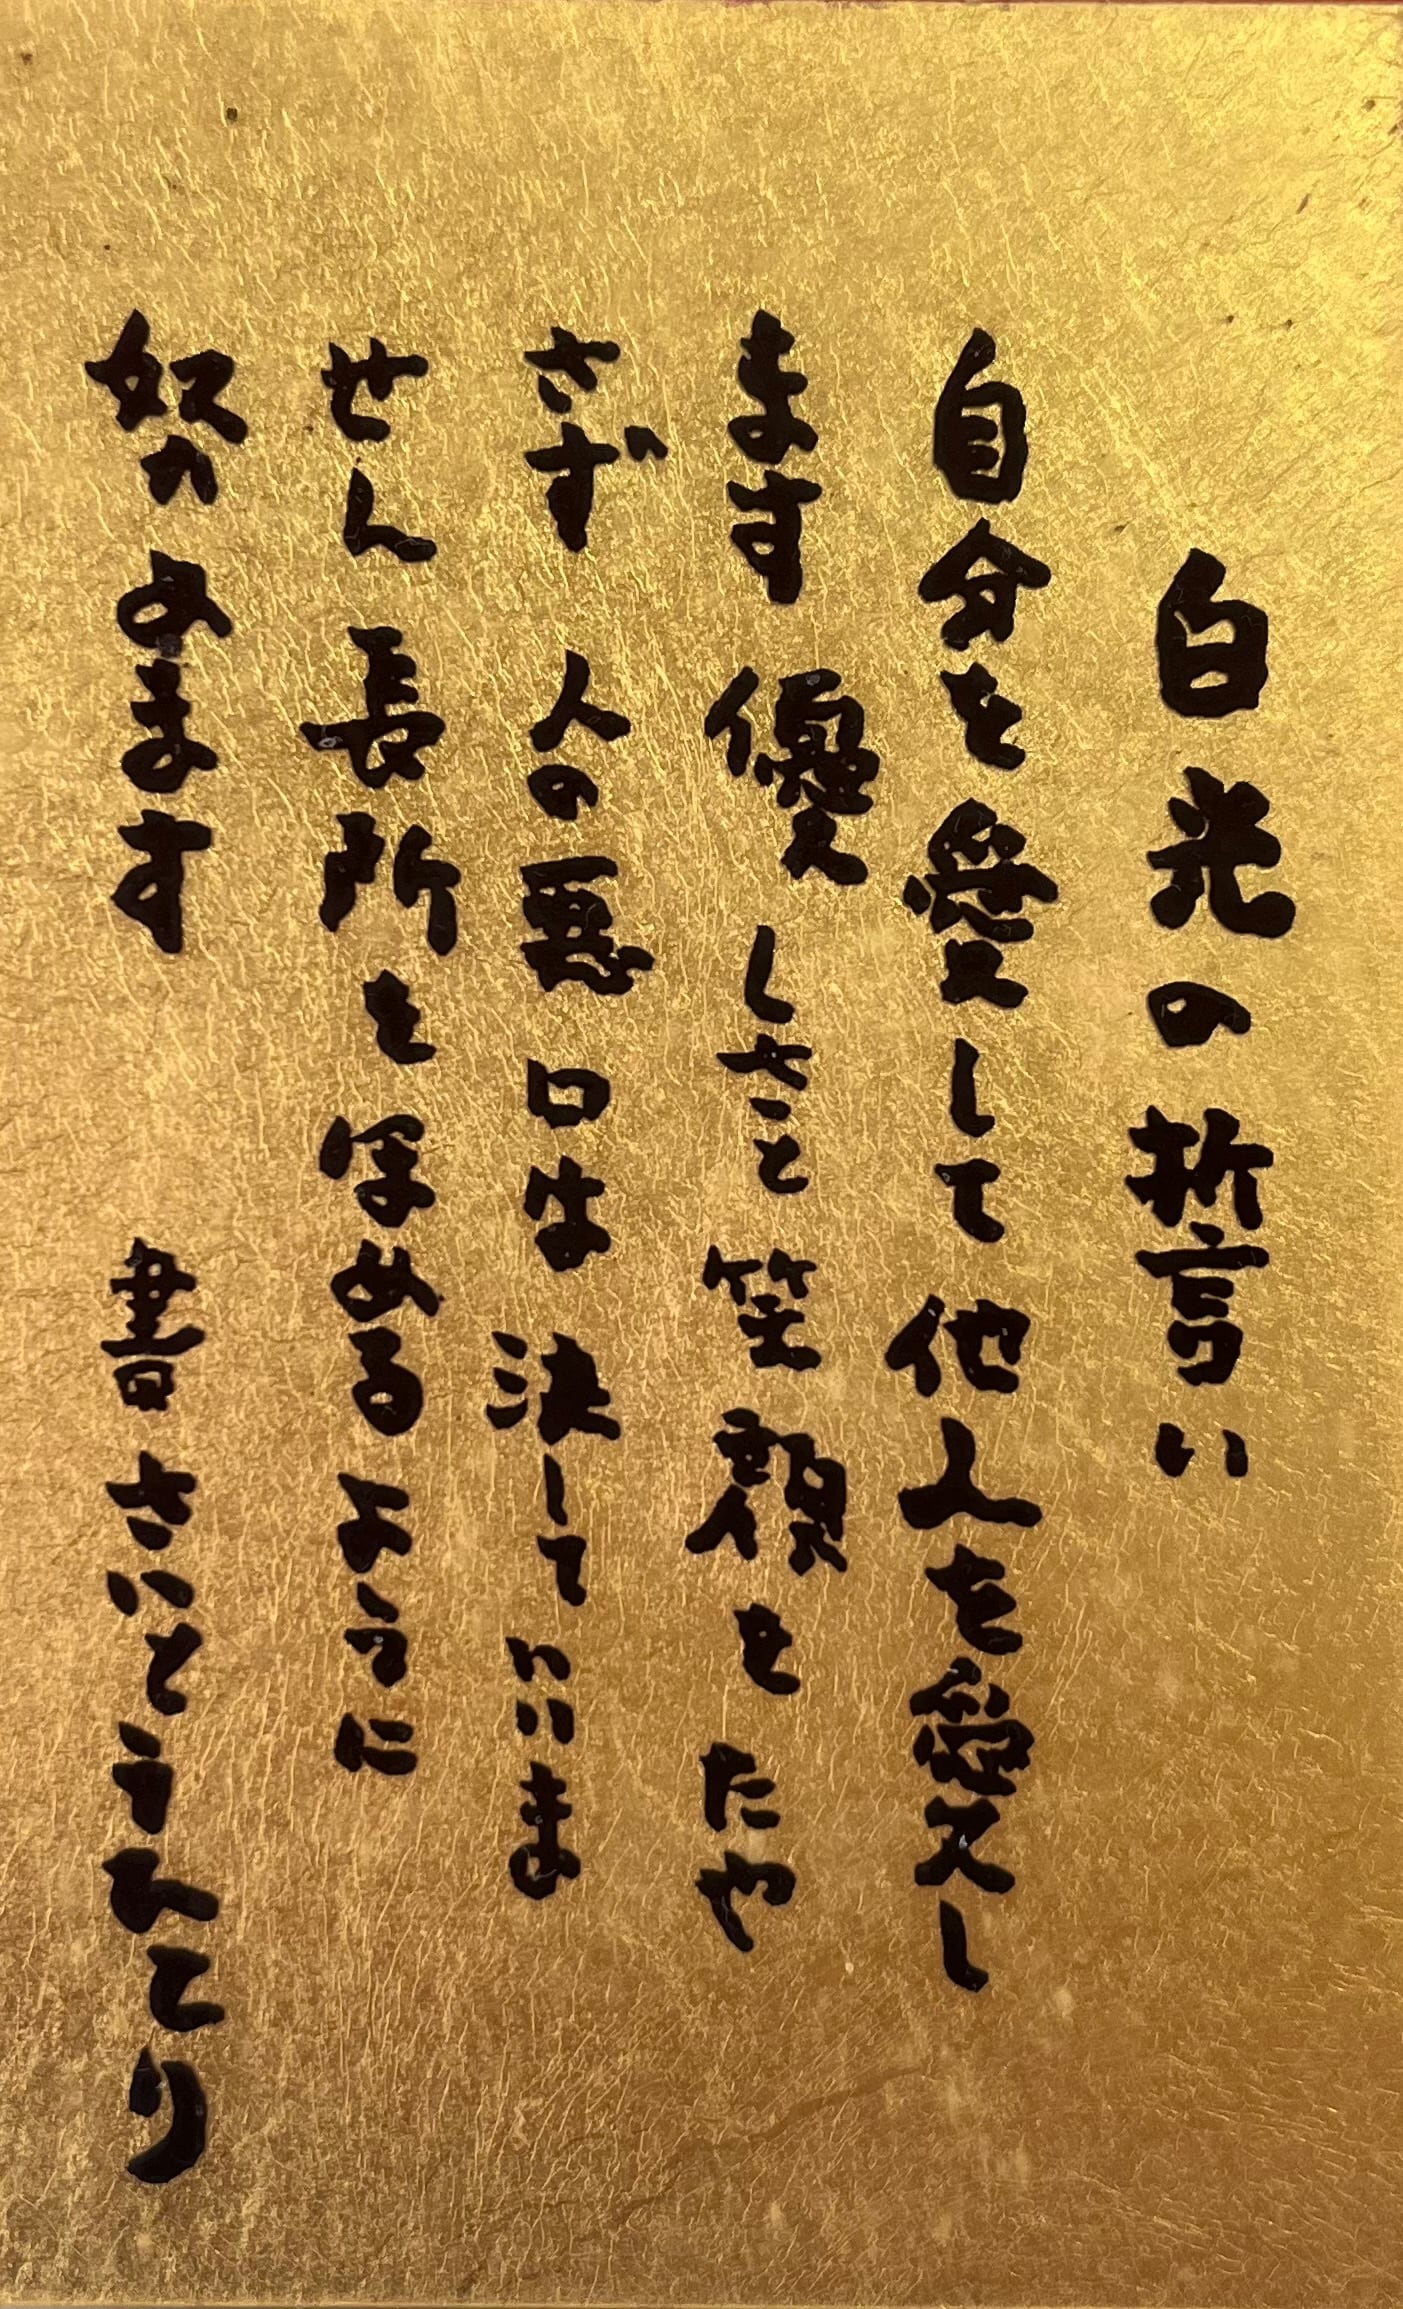 白光の誓い
自分を愛して他人を愛し
ます優しさと笑顔をたや
さず人の悪口は決していいま
せん長所をほめるように
努めます 書さいとうひとり